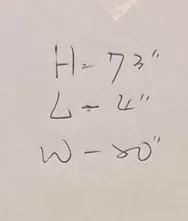 H - 73"
L - 4"
W - 80"